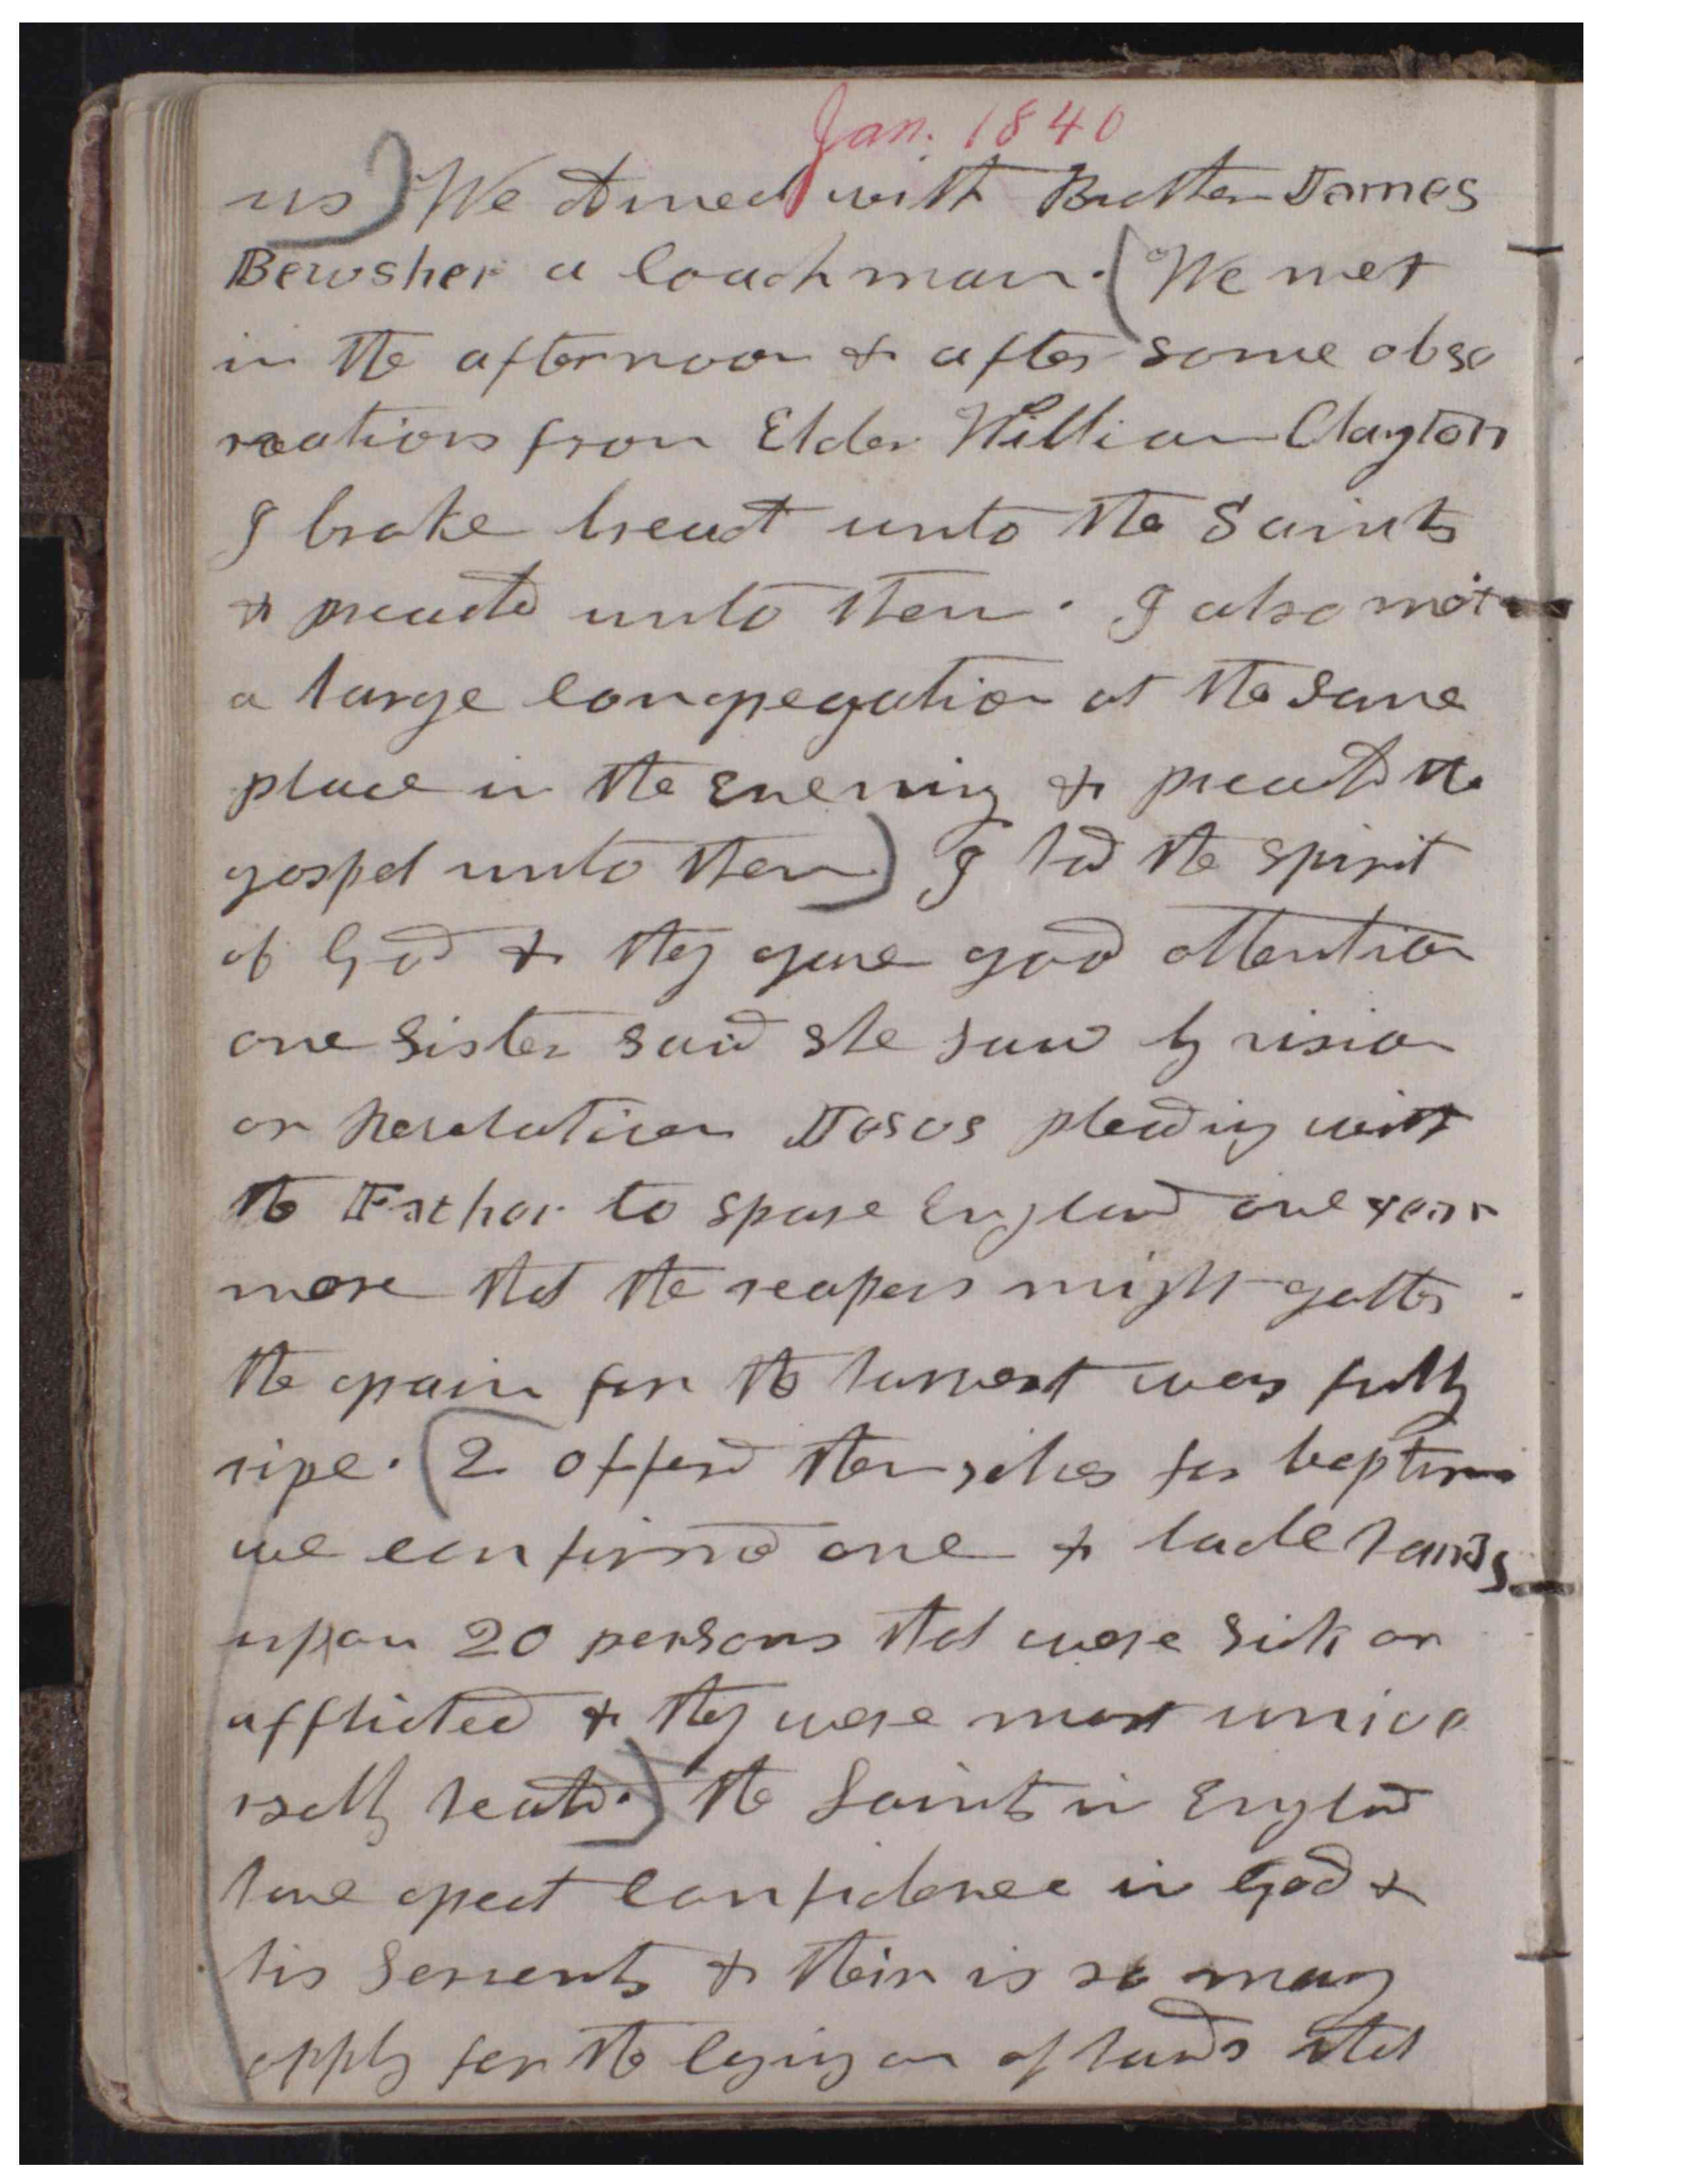 Jan. 1840
us) We dined with Brother James
Bewsher a Coachman. (We met
in the afternoon & after some obse
rvations from Elder William Clayton
I brake bread unto the Saints
& preachd unto them. I also met
a large Congregation at the same
place in the evening & preachd the
gospel unto them) I had the spirit
of God & they gave good attention
one Sister said she saw by vision
or Revelation Jesus pleading with
the Father to spare England one year
more that the reapers might gather
the grain for the harvest was fully
ripe. (2 offerd themselves for baptism
we confirmd one & lade hands
upon 20 persons that were sick or
afflicted & they were most unive
rsally heald.) the Saints in England
have great Confidence in God &
his Servents & their is so many
apply for the laying on of hands that